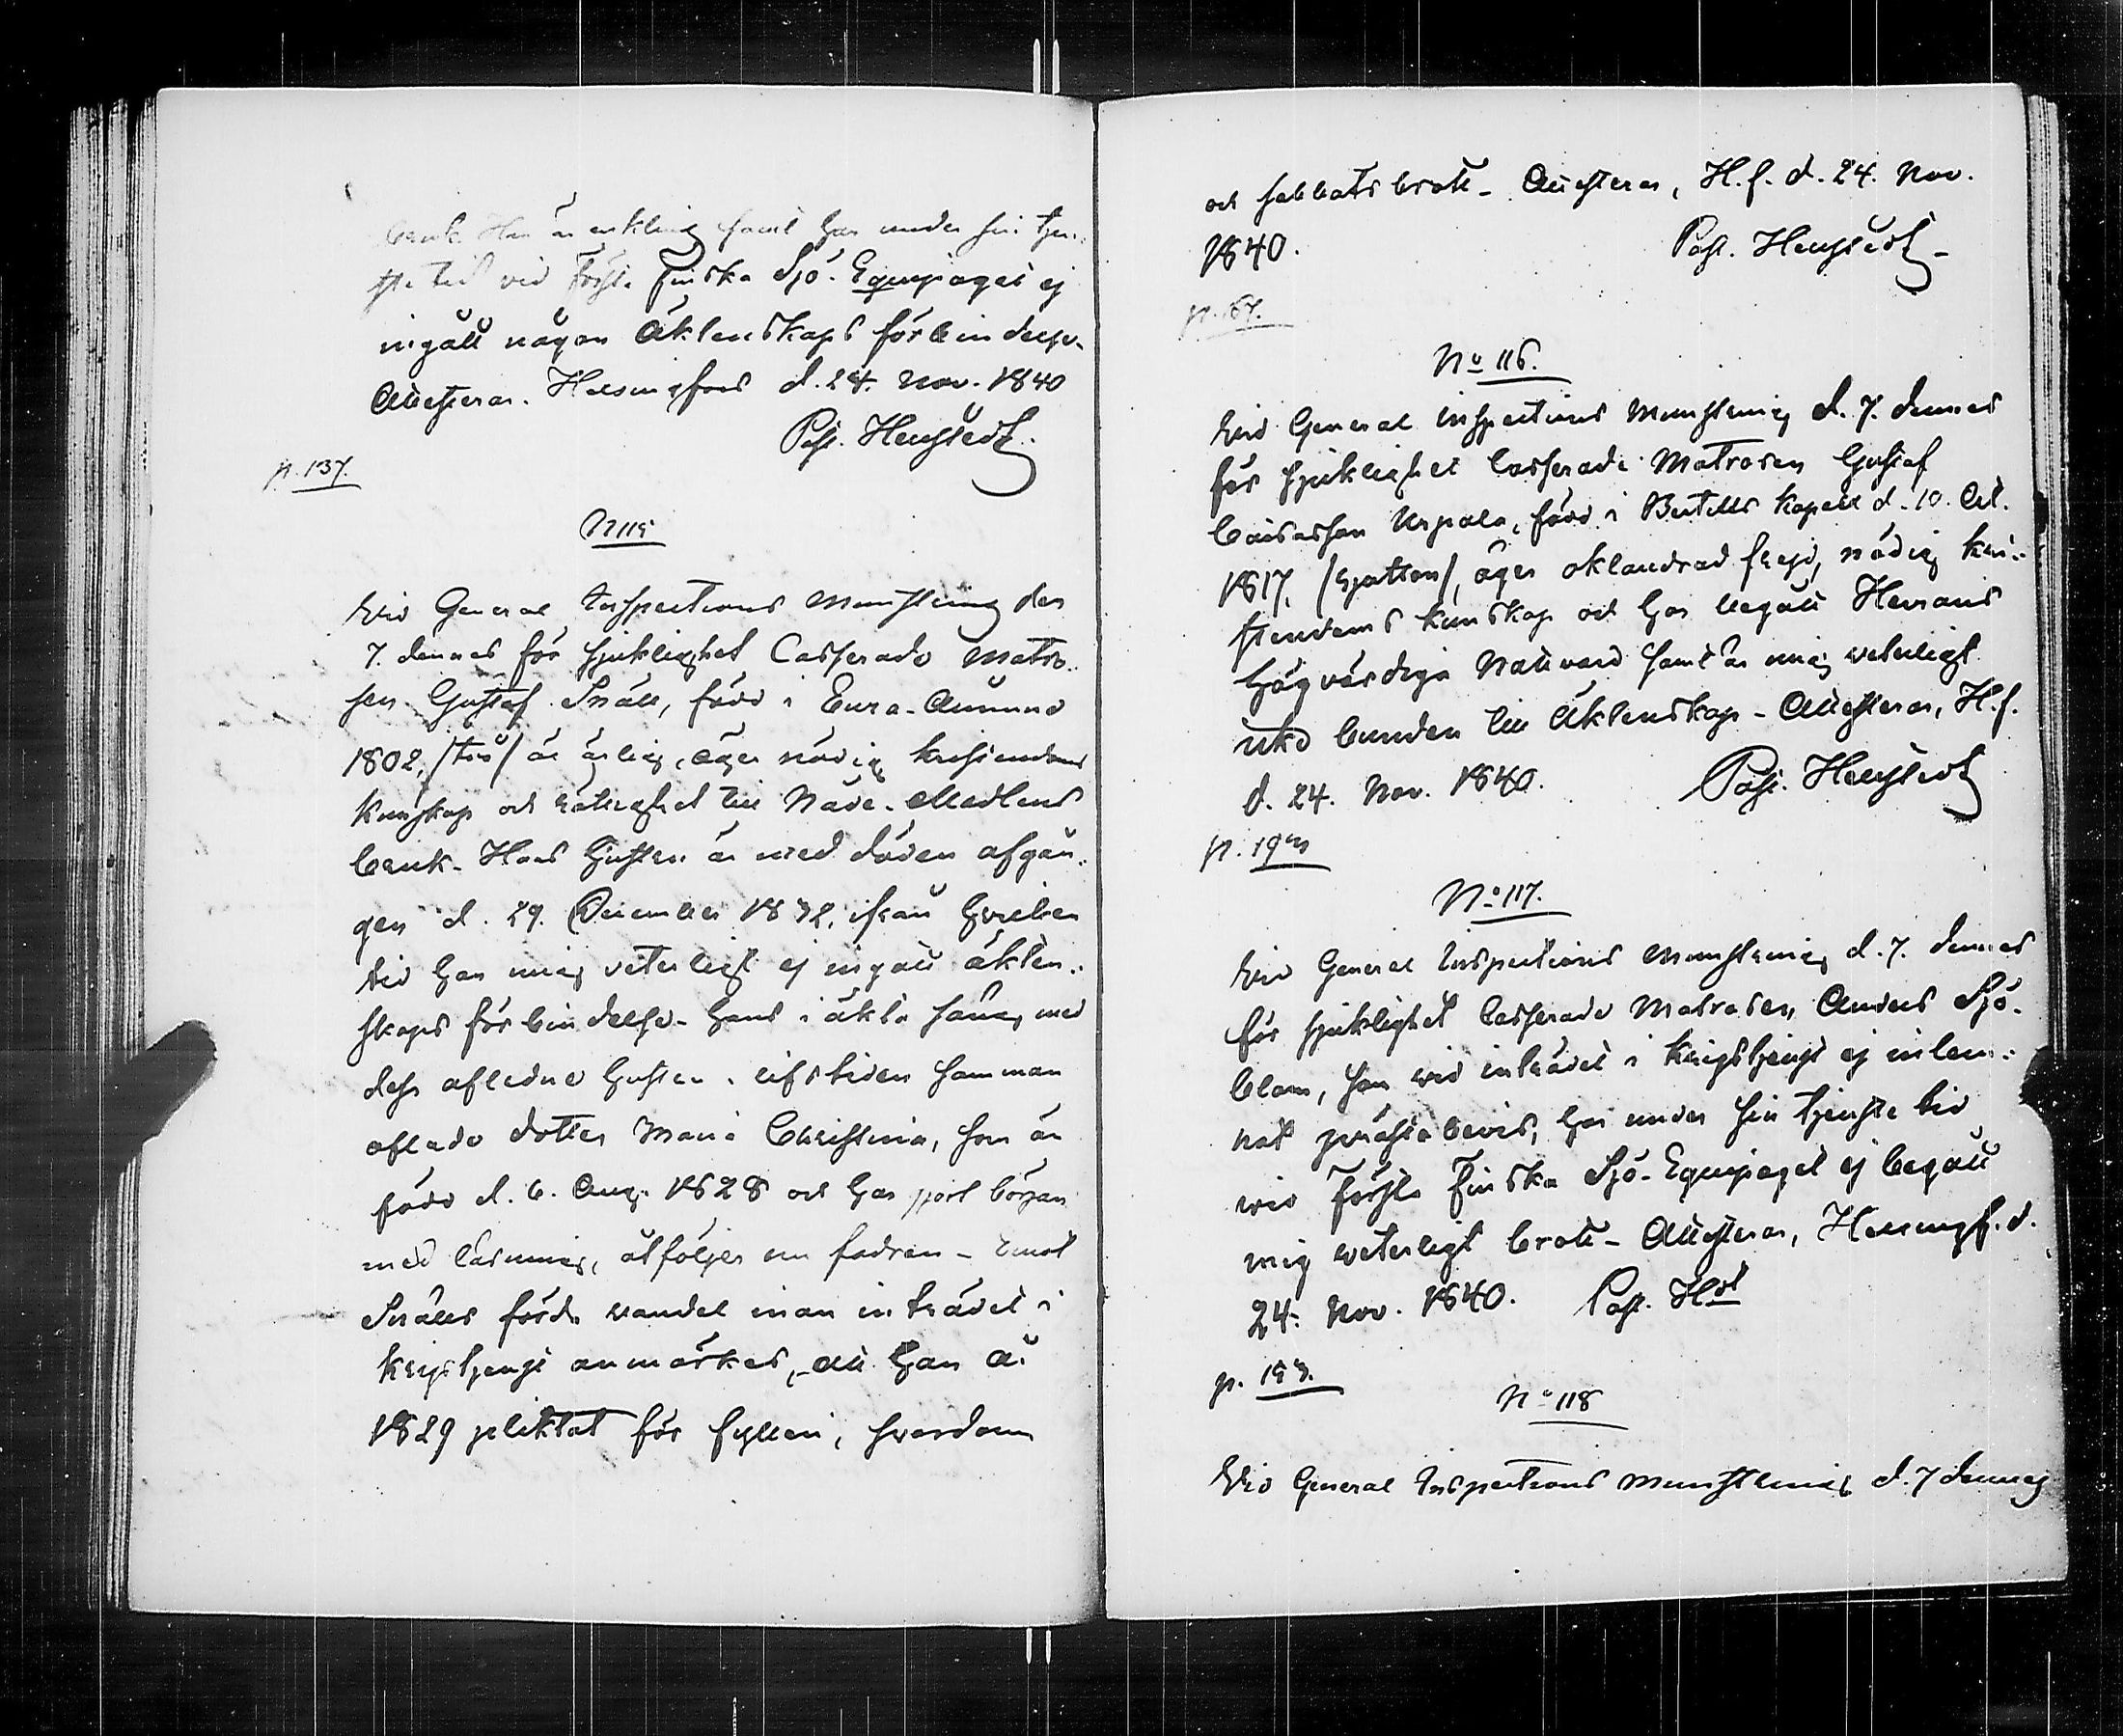 bruk. Han är enkling samt har under sin tjen-
ste tid vid Första Finska Sjö-Equipaget ej
ingått någon äktenskaps förbindelse.
Attesteras. Helsingfors d. 24. Nov. 1840
Past. Hengstedt.
p. 137.
N 115
Wid General Inspections Mönstring den
7. dennes för sjuklighet Casserade Matro-
sen Gustaf Snäll, född i Eura-Åminne
1802, /två/ är ärlig, äger nödig kristendoms
kunskap och rättighet till Nåde-Medlens
bruk. Hans hustru är med döden afgån-
gen d. 29. December 1832, ifrån hvilken
tid han mig veterligt ej ingått äkten-
skaps förbindelse. Hans i äkta säng med
dess aflidne hustru i lifstiden samman
aflade dotter Maria Christina, som är
född d. 6. Aug. 1828 och har gjort början
med läsning, åtföljer nu fadren. Emot
Snälls förda vandel innan inträdet i
krigstjenst anmärkes, att han år
1829 pliktat för fylleri, svordom
och sabbatsbrott. Attesteras, H.f. d. 24. Nov.
1840. Past. Hengstedt
p. 157.
No 116.
Wid General Inspections Mönstring d. 7. dennes
för sjuklighet Casserade Matrosen Gustaf
Caisasson Uspala, född i Bertills kapell d. 10. Oct.
1817, /sjutton/, äger oklandrad frejd, nödig kri-
stendoms kunskap och har begått Herrans
högvärdiga Nattvard samt är mig veterligt
icke bunden till äktenskap. Attesteras, H.f.
d. 24. Nov. 1840. Past. Hengstedt
No 117.
Wid General Inspections Mönstring d. 7. dennes
för sjuklighet Casserade Matrosen Anders Sjö-
blom, som vid inträdet i krigstjenst ej inlem-
nat prästabevis, har under sin tjenste tid
wid Första Finska Sjö-Equipaget ej begått
mig weterligt brott. Attesteras, Helsingf. d.
24. Nov. 1840. Past. Hdt
p. 153.
No 118
Wid General Inspections Mönstring d. 7 dennes